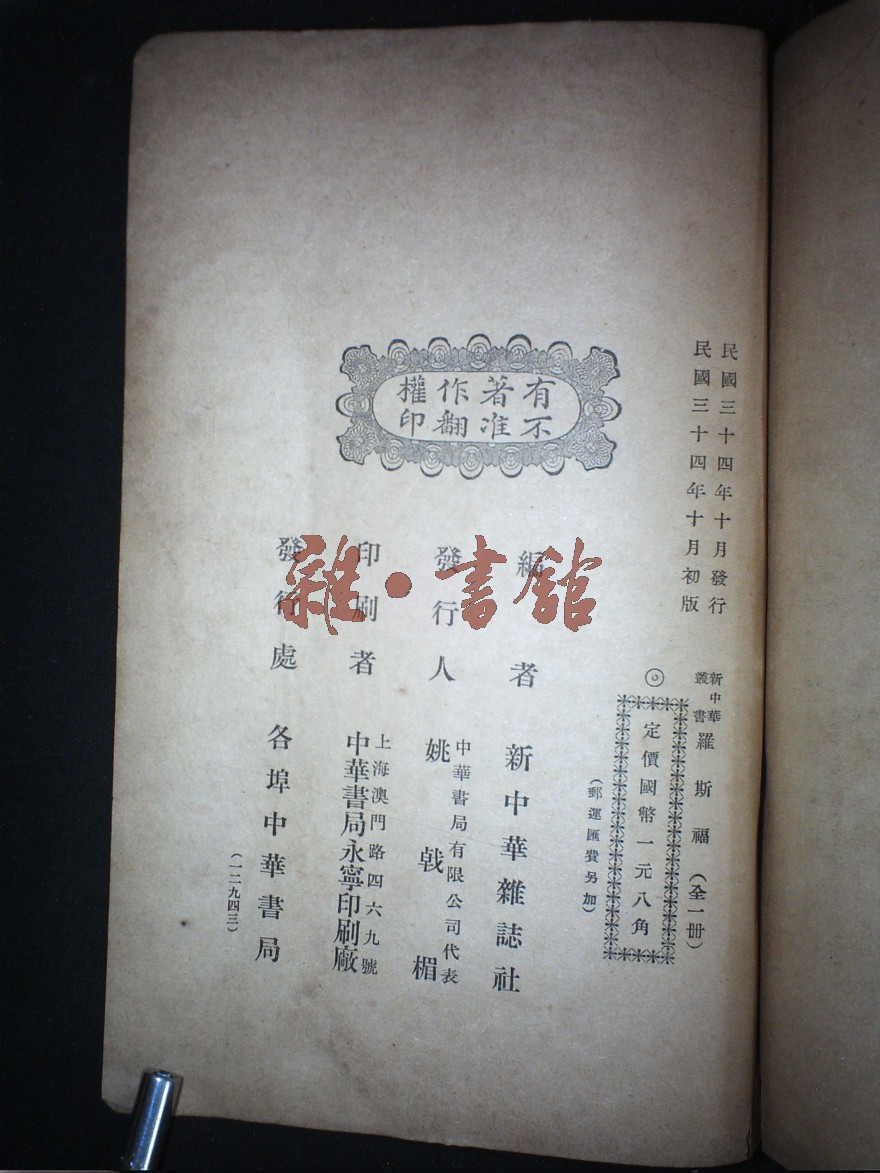 民國三十四年十月發行
民國三十四年十月初版
新中華叢書
羅斯福(全一冊)
◎定價國幣一元八角
(郵運匯費另加)
有著作權
不准翻印
編者 新中華雜誌社
發行人 中華書局有限公司代表
姚戟楣
印刷者 上海澳門路四六九號
中華書局永寧印刷廠
發行處 各埠中華書局
(一二九四三)
雜·書館